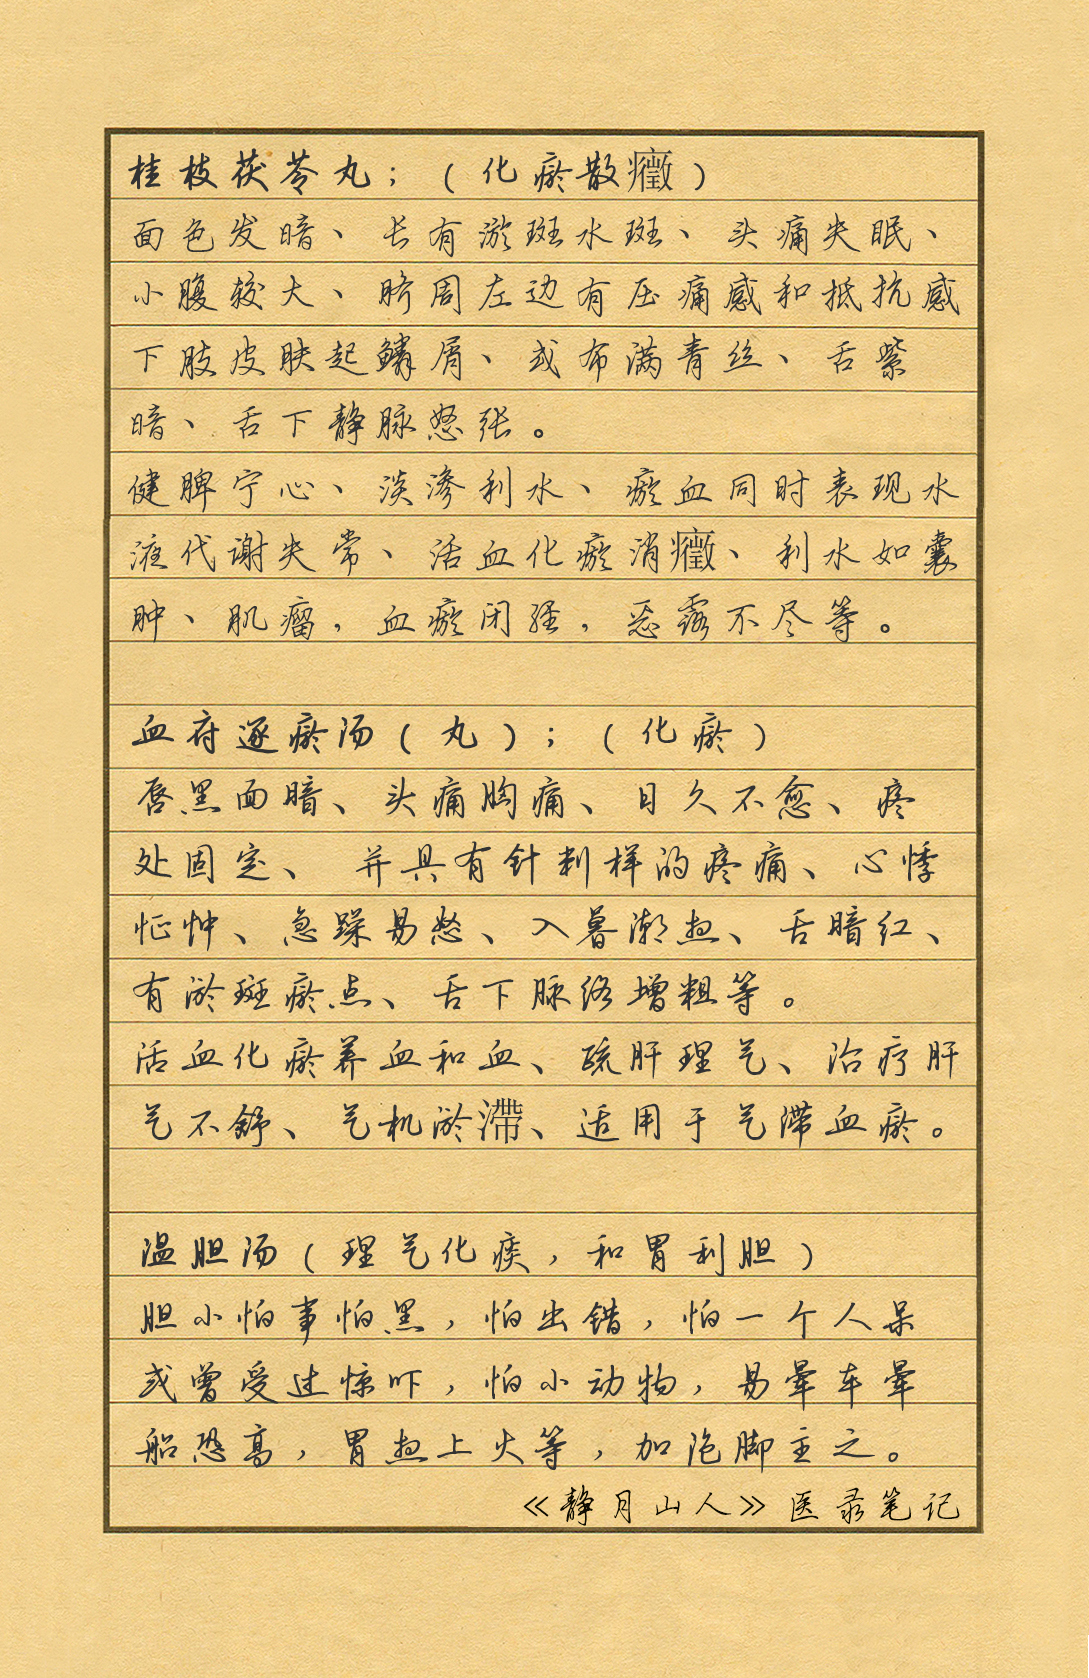 桂枝茯苓丸；（化瘀散癥）
面色发暗、长有淤斑水斑、头痛失眠、
小腹较大、脐周左边有压痛感和抵抗感
下肢皮肤起鳞屑、或布满青丝、舌紫
暗、舌下静脉怒张。
健脾宁心、淡渗利水、瘀血同时表现水
液代谢失常、活血化瘀消癥、利水如囊
肿、肌瘤，血瘀闭经，恶露不尽等。
血府逐瘀汤（丸）；（化瘀）
唇黑面暗、头痛胸痛、日久不愈、疼
处固定、并具有针刺样的疼痛、心悸
怔忡、急躁易怒、入暮潮热、舌暗红、
有淤斑瘀点、舌下脉络增粗等。
活血化瘀养血和血、疏肝理气、治疗肝
气不舒、气机淤滯、适用于气滞血瘀。
温胆汤（理气化痰，和胃利胆）
胆小怕事怕黑，怕出错，怕一个人呆
或曾受过惊吓，怕小动物，易晕车晕
船恐高，胃热上火等，加泡脚主之。
《静月山人》医录笔记